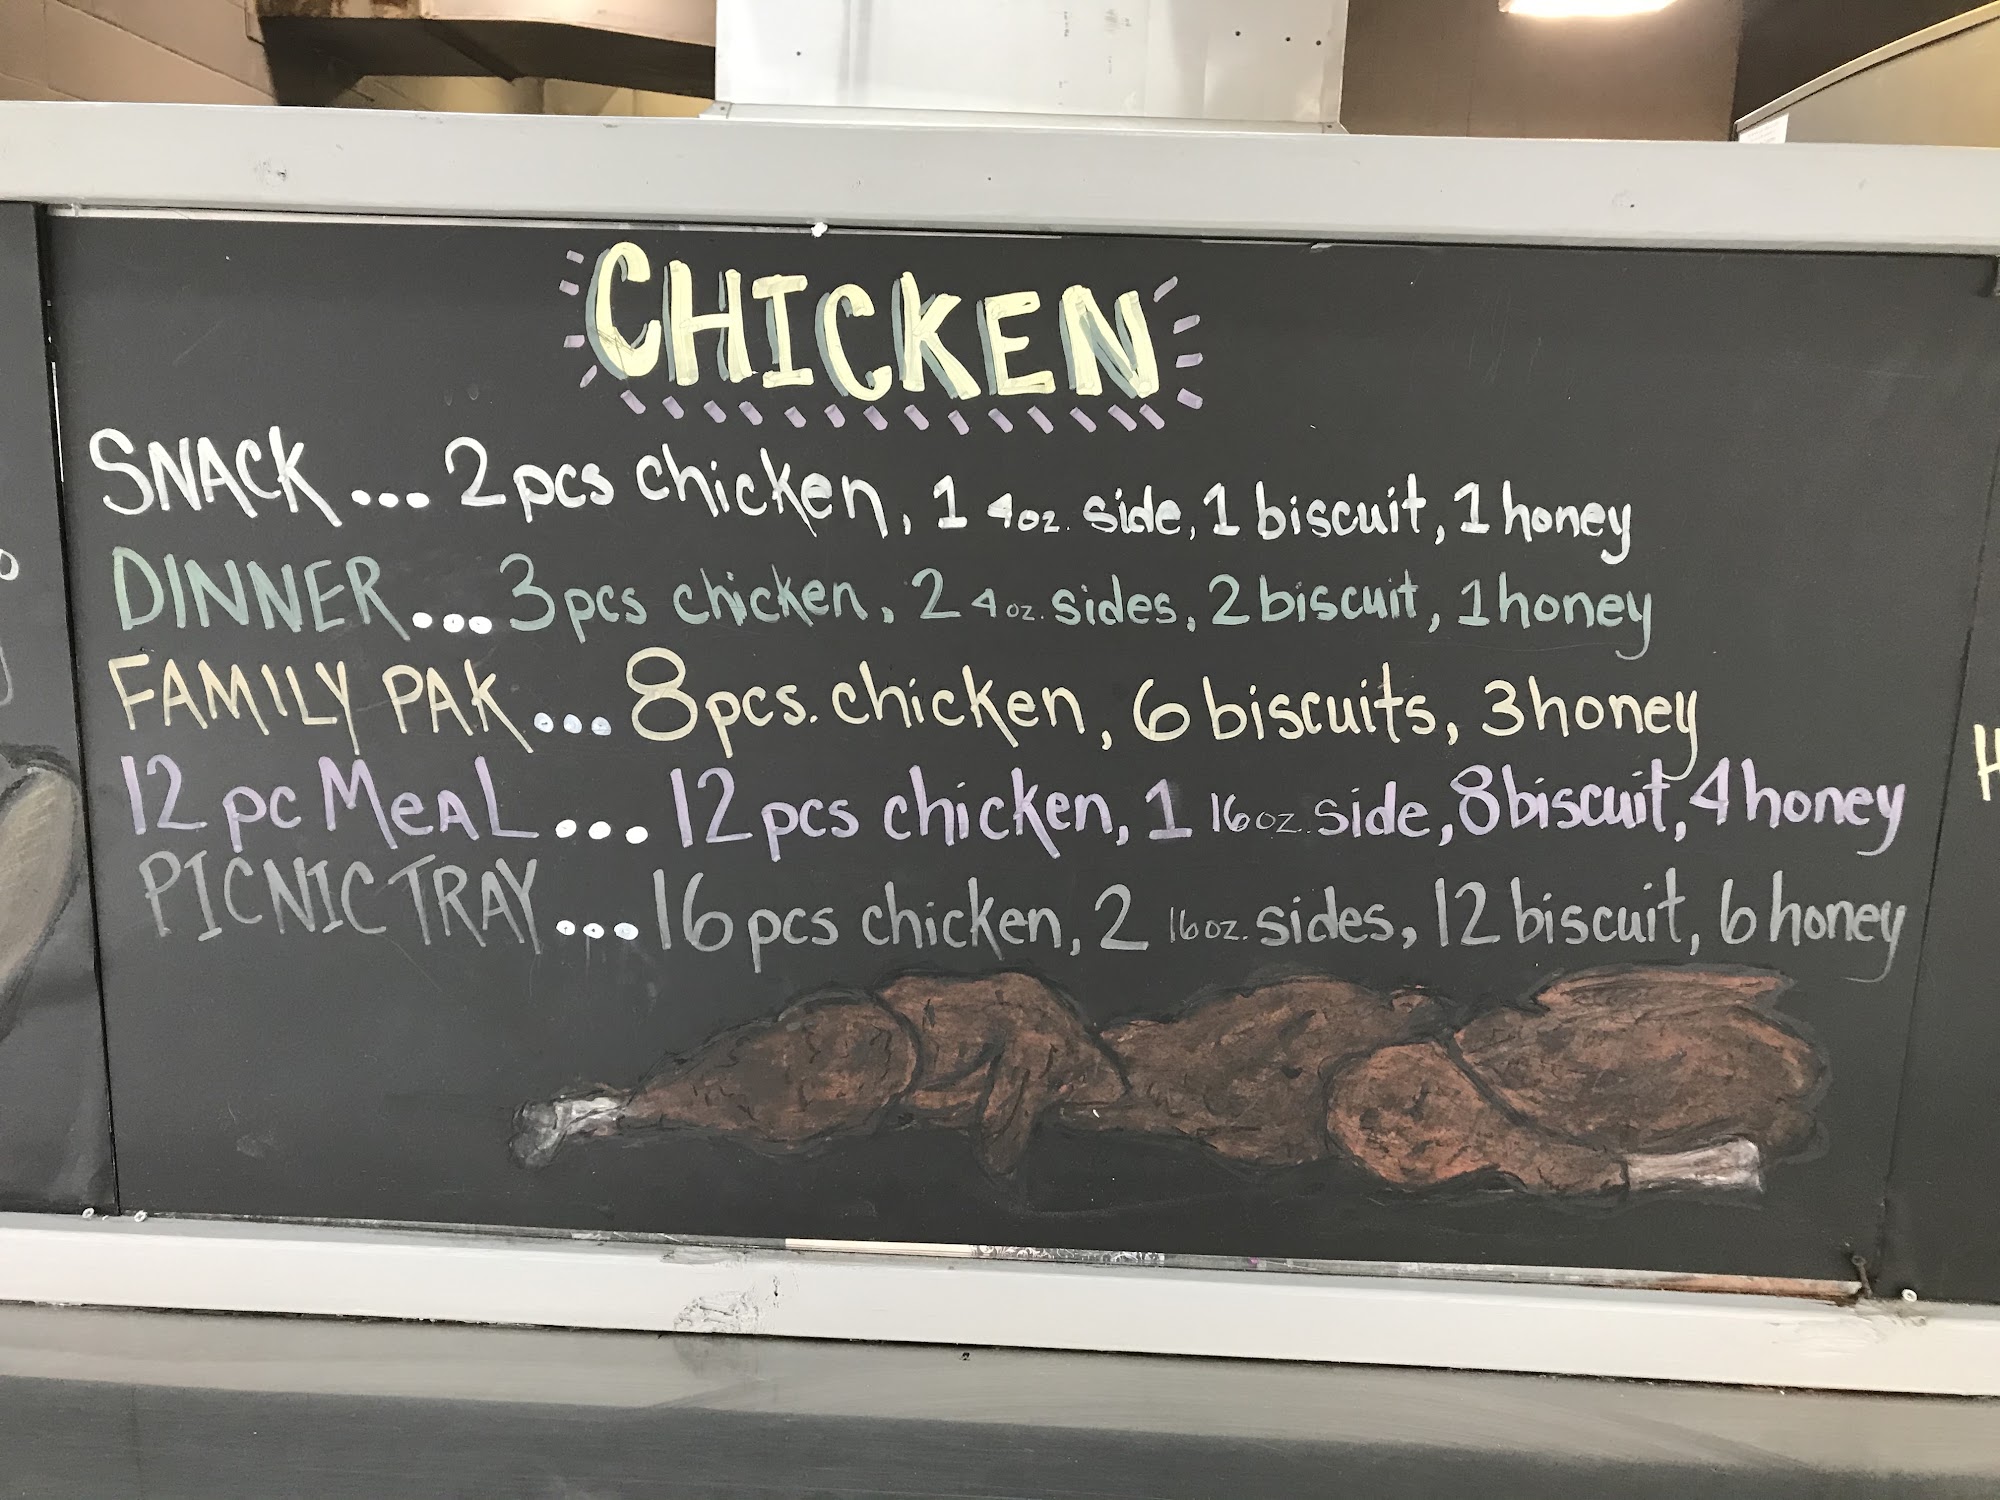 CHICKEN
SNACK... 2pcs chicken, 1 4oz. side, 1 biscuit, 1 honey
DINNER... 3pcs chicken, 2 4oz. sides, 2 biscuit, 1 honey
FAMILY PAK... 8pcs. chicken, 6 biscuits, 3 honey
12 pc MeAL... 12pcs chicken, 1 16oz. side, 8 biscuit, 4 honey
PICNIC TRAY... 16pcs chicken, 2 16oz. sides, 12 biscuit, 6 honey